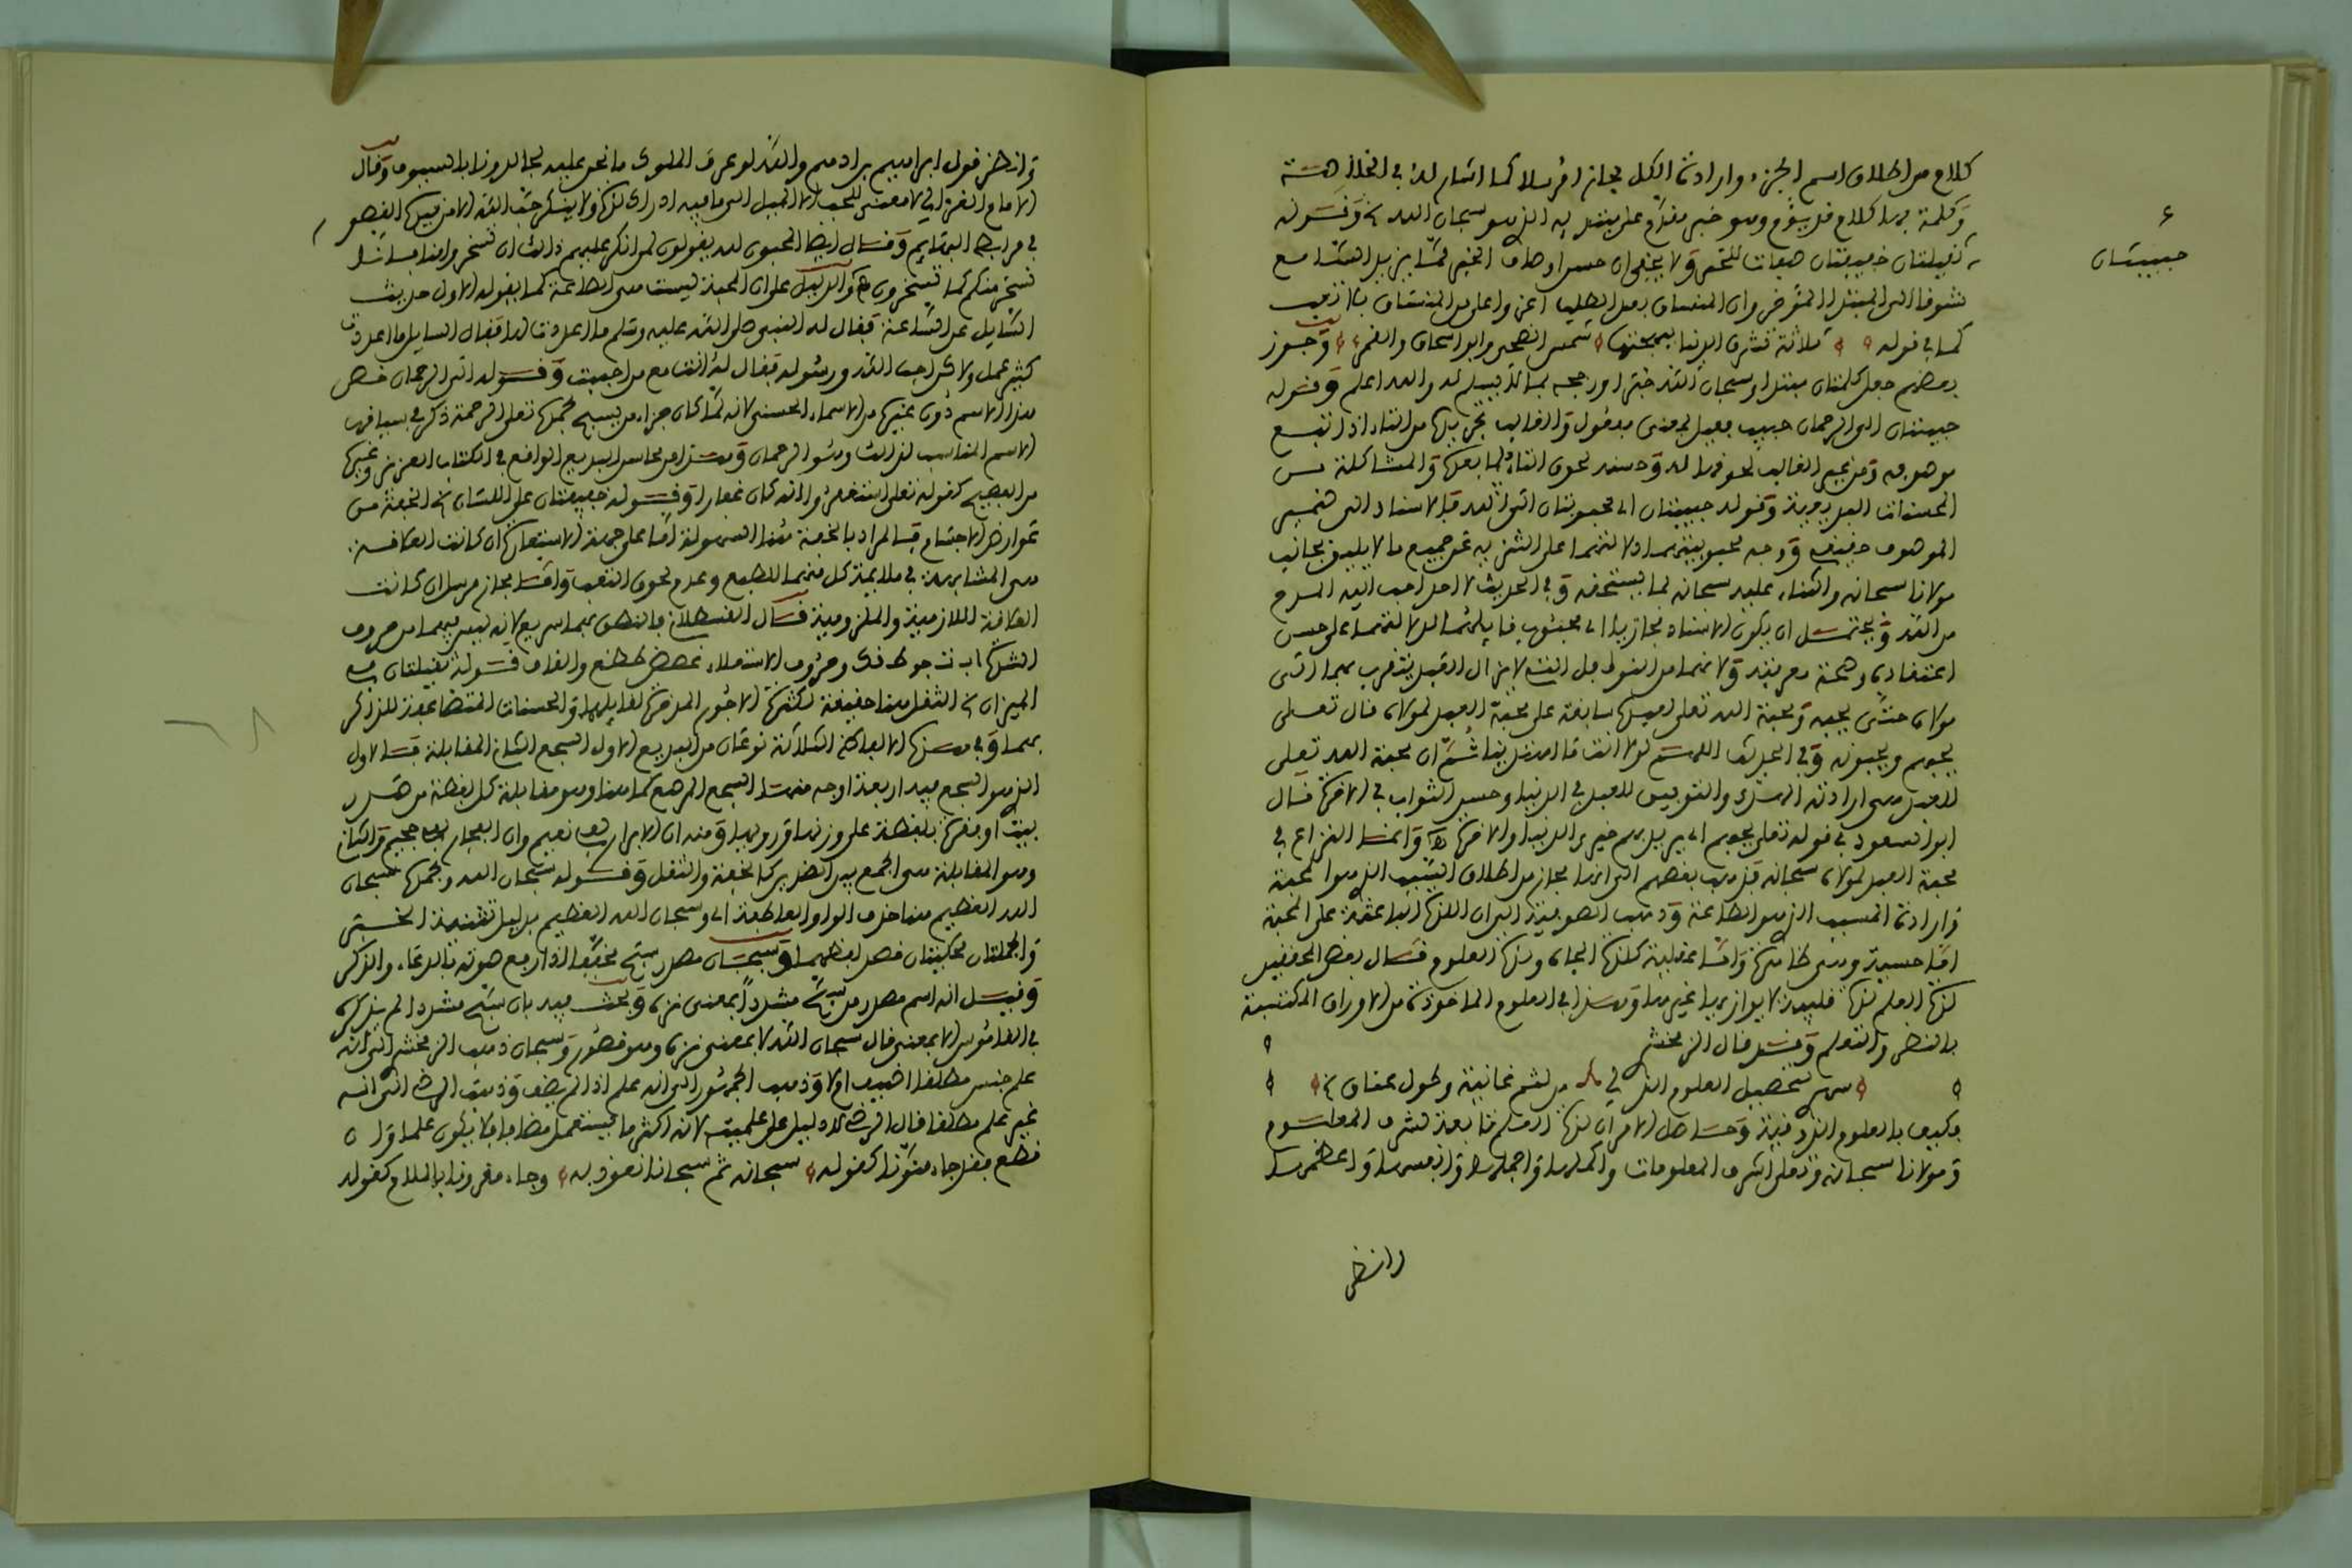 كلام من اطلاق اسم الجزء وارادة الكل مجاز مرسلا كما اشار له في الخلاصة
وكلمة بها كلام قد يؤم وهو خبر مقدم على مبتدإه الذي هو سبحان الله وقوله
ثقيلتان خفيفتان صفات للخبر ولا يخفى ان حسن اوصاف الخبر مما يزيد السامع
تشوفا الى المبتدإ المؤخر وان النفس بعد الطلب اعز واعلى من المنساق بلا تعب
كما في قوله ثلاثة تشرق الدنيا ببهجتها شمس الضحى وابو اسحاق والقمر وجوز
بعضهم جعل كلمتان مبتدأ وسبحان الله خبرا ورجحه بما لا دليل له والله اعلم وقوله
حبيبتان
حبيبتان الى الرحمان حبيب فعيل بمعنى مفعول والغالب تجريدها من التاء اذا تبع
موصوفه ومن غير الغالب لحوقها له وحسنه لحوق التاء لما بعدها والمشاكلة من
المحسنات البديعية وقوله حبيبتان اي محبوبتان الى الله فالاسناد الى ضمير
الموصوف حقيقة ووجه محبوبيتهما دلالتهما على التنزيه عن جميع ما لا يليق بجانب
مولانا سبحانه والثناء عليه سبحانه بما يستحقه وفي الحديث لا احد احب اليه المدح
من الله ويحتمل ان يكون الاسناد مجازيا اي محبوب قايلهما لدلالتهما على حسن
اعتقاده وصحة معرفته ولانهما من النوافل التي لا يزال العبد يتقرب بهما الى
مولاه حتى يحبه ومحبة الله تعلى لعبده سابقة على محبة العبد لمولاه قال تعلى
يحبهم ويحبونه وفي الحديث اللهم لولا انت ما اهتدينا ثم ان محبة الله تعلى
للعبد هي ارادته الهدى والتوفيق للعبد في الدنيا وحسن الثواب في الاخرة قال
ابو السعود في قوله تعلى يحبهم اي يريد بهم خير الدنيا والاخرة وانما النزاع في
محبة العبد لمولاه سبحانه فذهب بعضهم الى انها مجاز من اطلاق السبب الذي هو المحبة
وارادة المسبب الذي هو الطاعة وذهب الصوفية الى ان اللذة الباعثة على المحبة
اما حسية وهي ظاهرة واما عقلية كلذة الجاه ولذة العلوم قال بعض المحققين
لذة العلم لذة قلبية لا يوازيها غيرها وهذا في العلوم الماخوذة من الاوراق المكتسبة
بالنظر والتعلم وقد قال الزمخشري
سهري لتحصيل العلوم الذ لي من لثم غانية وطول عناق
فكيف بالعلوم الذوقية وحاصل الامر ان لذة العلم تابعة لشرف المعلوم
ومولانا سبحانه وتعلى اشرف المعلومات واكملها واجملها وابهيها واعظمها
وانظر
وانظر قول ابراهيم بن ادهم والله لو عرف الملوك ما نحن عليه لجالدونا بالسيوف وقال
الامام الغزالي لا معنى للمحبة الا الميل الى ما فيه ادراك لذة ولا ينكر حب الله الا من قيده القصور
في مرابط البهائم وقال ايضا المحبون لله يقولون لمن انكر عليهم ذالك ان تسخروا منا فانا
نسخر منكم كما تسخرون والدليل على ان المحبة ليست هي الطاعة كما يقوله الاول حديث
السايل عن الساعة فقال له النبي صلى الله عليه وسلم ما اعددت لها فقال السايل ما اعددت
كثير عمل ولاكن احب الله ورسوله فقال له انت مع من احببت وقوله الى الرحمان خص
هذا الاسم دون غيره من الاسماء الحسنى لانه لما كان جزاء من يسبح بحمده تعلى الرحمة ذكر في سياقه
الاسم المناسب لذالك وهو الرحمان وهذا من محاسن البديع الواقع في الكتاب العزيز وغيره
من الفصيح كقوله تعلى استغفروا ربكم انه كان غفارا وقوله خفيفتان على اللسان الخفة من
عوارض الاجسام فالمراد بالخفة هنا السهولة اما على جهة الاستعارة ان كانت العلاقة
هي المشابهة في ملايمة كل منهما للطبع وعدم لحوق التعب واما مجاز مرسل ان كانت
العلاقة اللازمية والملزومية قال القسطلاني فالنطق بهما سريع لانه ليس فيهما من حروف
الشدة اب ت ج د ط ق ك وحروف الاستعلاء خ ص ض ط ظ غ والقاف قوله ثقيلتان في
الميزان الثقل هنا حقيقة لكثرة الاجور المدخرة لقايلهما والحسنات المتضاعفة للذاكر
بهما وفي هذه الالفاظ الثلاثة نوعان من البديع الاول السجع الثاني المقابلة فالاول
الذي هو السجع فيه اربعة اوجه منها السجع المرصع كما هنا وهو مقابلة كل لفظة من صدر
بيت او فقرة بلفظة على وزنها ورويها ومنه ان الابرار لفي نعيم وان الفجار لفي جحيم والثاني
وهو المقابلة هي الجمع بين الضدين كالخفة والثقل وقوله سبحان الله وبحمده سبحان
الله العظيم هنا حذف الواو العاطفة اي وسبحان الله العظيم بدليل تثنية الخبر
والجملتان محكيتان قصد لفظهما وسبحان مصدر سبح مخففا اذا رفع صوته بالدعاء والذكر
وقيل انه اسم مصدر من سبح مشددا بمعنى نزه وبحث فيه بان سبح مشددا لم يذكره
في القاموس الا بمعنى قال سبحان الله لا بمعنى نزه وهو قصور وسبحان ذهب الزمخشري الى انه
علم جنس مطلقا اضيف ام لا وذهب الجمهور الى انه علم اذا لم يضف وذهب الرضي الى انه
غير علم مطلقا قال الرضي لا دليل على علميته لانه اكثر ما يستعمل مضافا فلا يكون علما وان
قطع فقد جاء منونا كقوله سبحانه ثم سبحانا نعوذ به وجاء مقرونا باللام كقوله